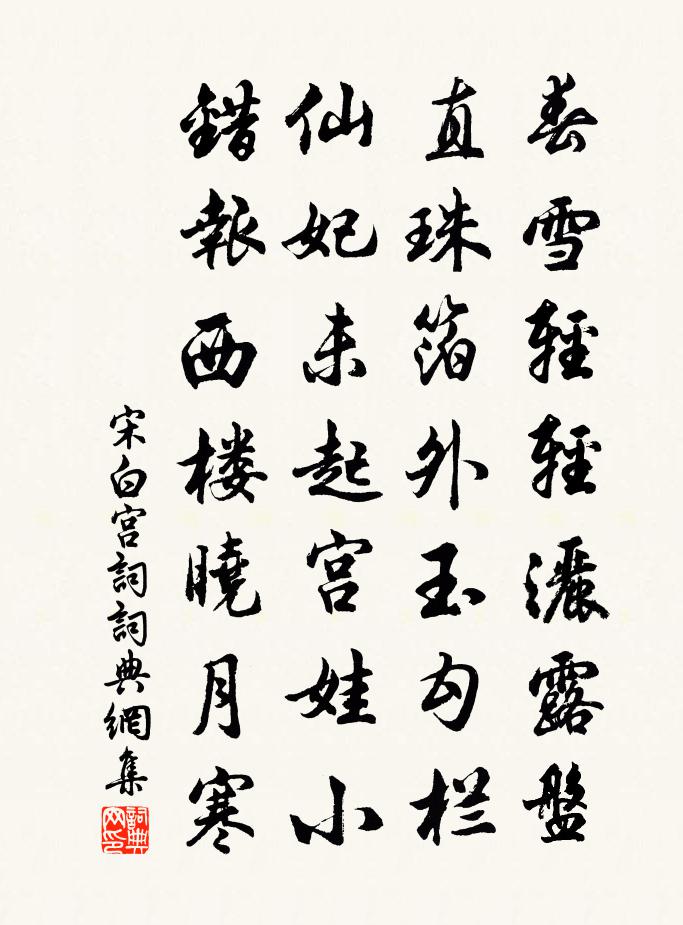 春雪輕輕灑露盤
直珠箔外玉勾栏
仙妃未起宫娃小
錯報西楼曉月寒
宋白宫詞詞典網集
詞典网印